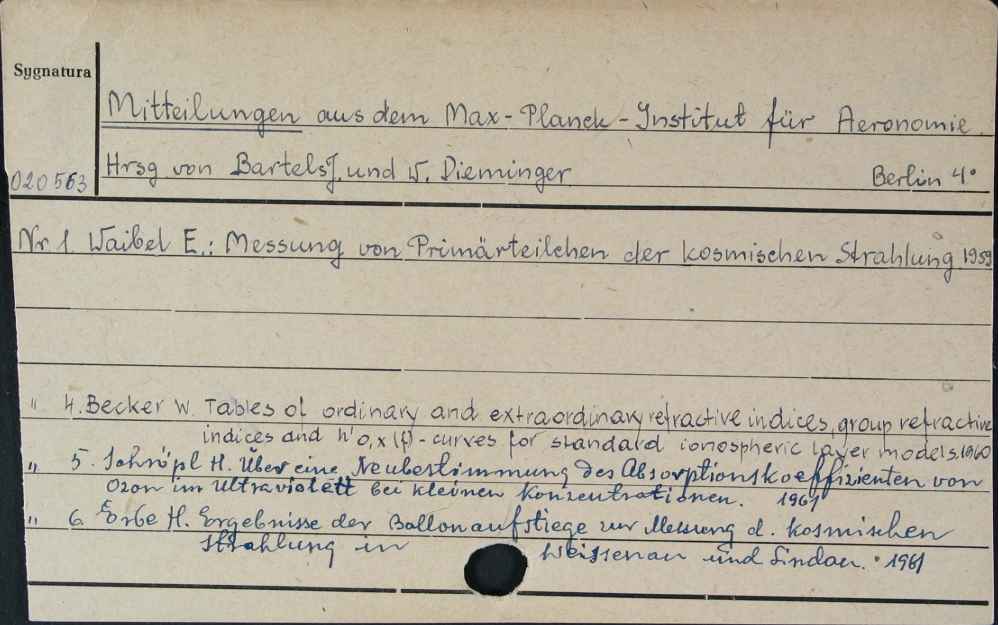 Sygnatura
Mitteilungen aus dem Max-Planck-Institut für Aeronomie.
020563
Hrsg von Bartels J. und W. Dieminger Berlin 4°
Nr 1. Waibel E.: Messung von Primärteilchen der kosmischen Strahlung 1959
" 4. Becker W. Tables of ordinary and extraordinary refractive indices, group refractive
indices and h'o,x(f)-curves for standard ionospheric layer models. 1960
" 5. Schröpl H. Über eine Neubestimmung des Absorptionskoeffizienten von
Ozon im Ultraviolett bei kleinen Konzentrationen. 1961
" 6. Erbe H. Ergebnisse der Ballonaufstiege zur Messung d. kosmischen
Strahlung in Weissenau und Lindau. 1961